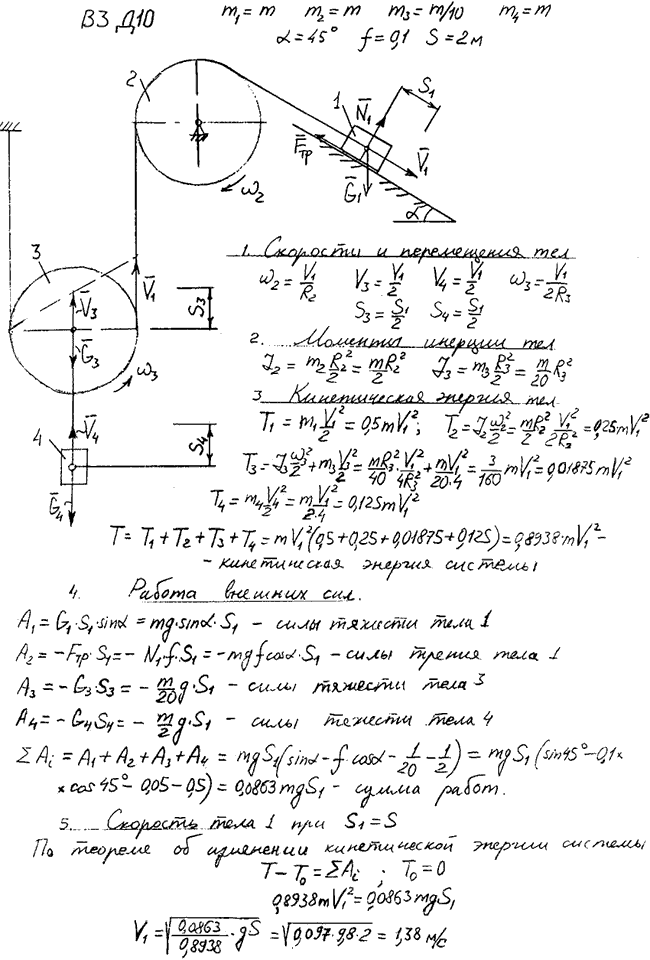 ВЗ Д10
m₁ = m m₂ = m m₃ = m/10 m₄ = m
α = 45° f = 0,1 S = 2 м
2
1
N̄₁
S₁
F̄тр
V̄₁
Ḡ₁
α
ω₂
3
V̄₁
V̄₃
S₃
Ḡ₃
ω₃
V̄₄
4
S₄
Ḡ₄
1. Скорости и перемещения тел
ω₂ = V₁/R₂ V₃ = V₁/2 V₄ = V₁/2 ω₃ = V₁/2R₃
S₃ = S₁/2 S₄ = S₁/2
2. Моменты инерции тел
J₂ = m₂ R₂²/2 = mR₂²/2 J₃ = m₃ R₃²/2 = m/20 R₃²
3. Кинетическая энергия тел
T₁ = m₁ V₁²/2 = 0,5mV₁²; T₂ = J₂ ω₂²/2 = mR₂²/2 V₁²/2R₂² = 0,25mV₁²
T₃ = J₃ ω₃²/2 + m₃ V₃²/2 = mR₃²/40 · V₁²/4R₃² + mV₁²/20·4 = 3/160 mV₁² = 0,01875mV₁²
T₄ = m₄ V₄²/2 = m V₁²/2·4 = 0,125mV₁²
T = T₁ + T₂ + T₃ + T₄ = mV₁²(0,5 + 0,25 + 0,01875 + 0,125) = 0,8938·mV₁² –
- кинетическая энергия системы
4. Работа внешних сил.
A₁ = G₁·S₁·sinα = mg·sinα·S₁ – силы тяжести тела 1
A₂ = –Fтр·S₁ = – N₁·f·S₁ = –mgf cosα·S₁ – силы трения тела 1
A₃ = –G₃·S₃ = – m/20 g·S₁ – силы тяжести тела 3
A₄ = –G₄S₄ = – m/2 g·S₁ – силы тежести тела 4
ΣAᵢ = A₁ + A₂ + A₃ + A₄ = mgS₁(sinα – f·cosα – 1/20 – 1/2) = mgS₁(sin45° – 0,1×
× cos45° – 0,05 – 0,5) = 0,0863mgS₁ – сумма работ.
5. Скорость тела 1 при S₁ = S
По теореме об изменении кинетической энергии системы
T – T₀ = ΣAᵢ ; T₀ = 0
0,8938mV₁² = 0,0863mgS₁
V₁ = √(0,0863/0,8938 · gS) = √(0,097·9,8·2) = 1,38 м/с